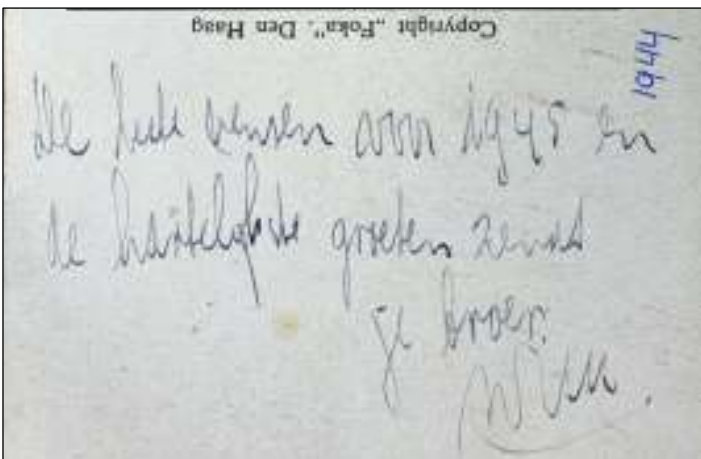 Copyright „Foka". Den Haag
1944
De beste wensen voor 1945 en
de hartelijkste groeten zendt
je broer.
Wim.